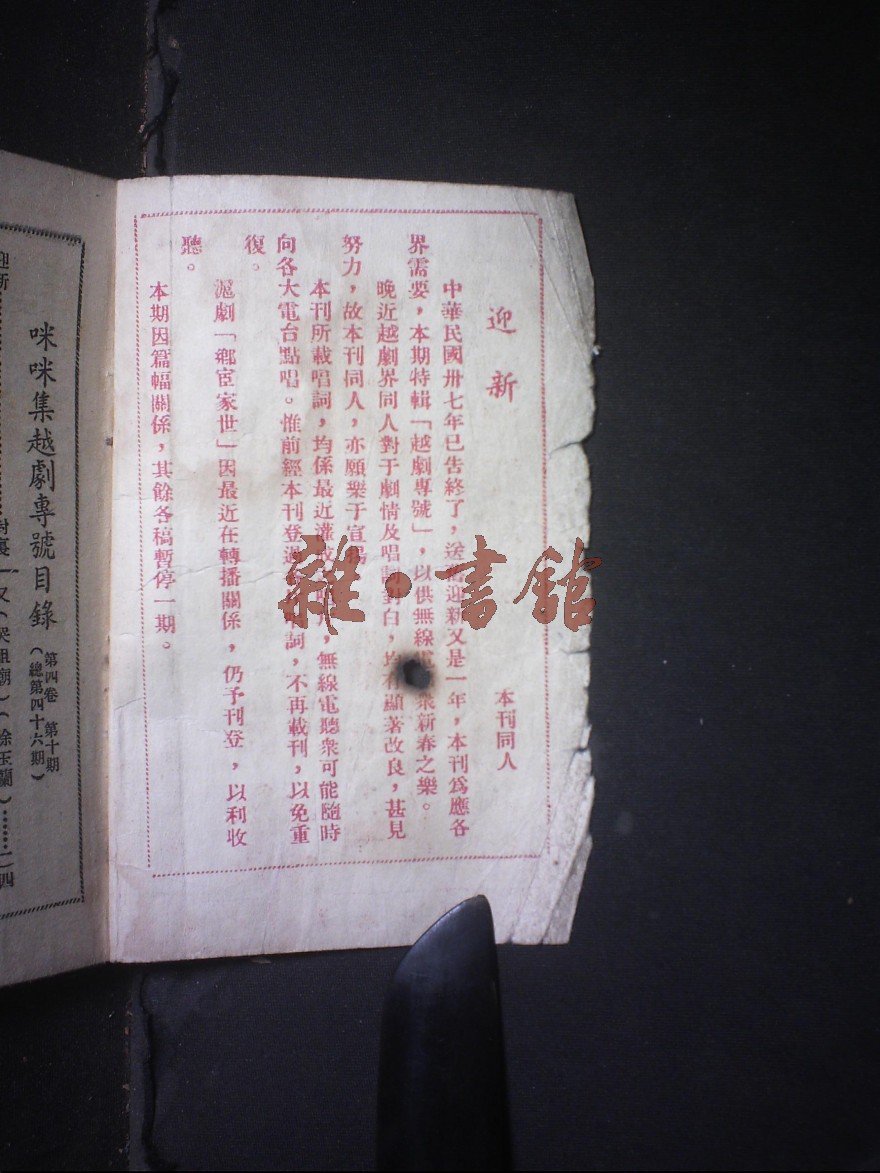 迎新
本刊同人
中華民國卅七年已告終了，送舊迎新又是一年，本刊爲應各
界需要，本期特輯「越劇專號」，以供無線電聽衆新春之樂。
晚近越劇界同人對于劇情及唱詞對白，均有顯著改良，甚見
努力，故本刊同人，亦願樂于宣揚
本刊所載唱詞，均係最近灌，無線電聽衆可能隨時
向各大電台點唱。惟前經本刊登過唱詞，不再載刊，以免重
復。
滬劇「鄉宦家世」因最近在轉播關係，仍予刊登，以利收
聽。
本期因篇幅關係，其餘各稿暫停一期。
雜·書館
咪咪集越劇專號目錄
第四卷 第十期
（總第四十六期）
迎新
封裏